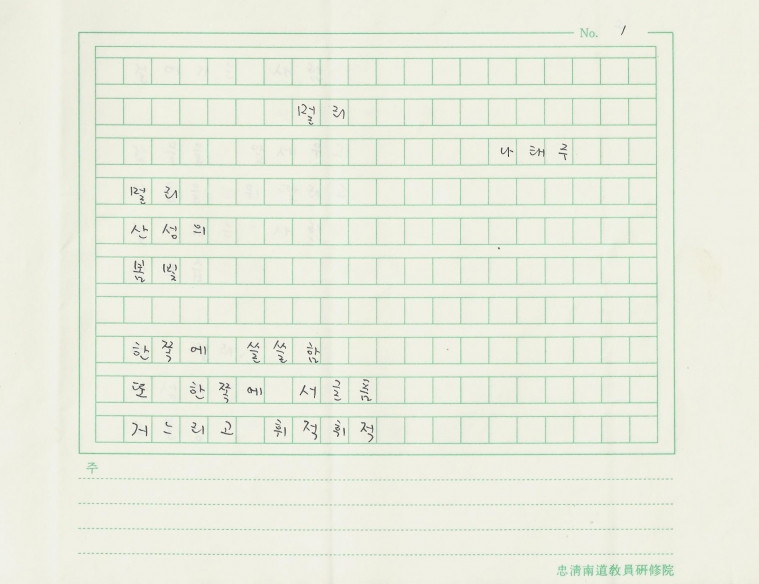 No. 1
멀리
나태주
멀리
산성의
봄빛
한쪽에 쓸쓸함
또 한쪽에 서글픔
거느리고 휘적휘적
주
忠淸南道敎員硏修院